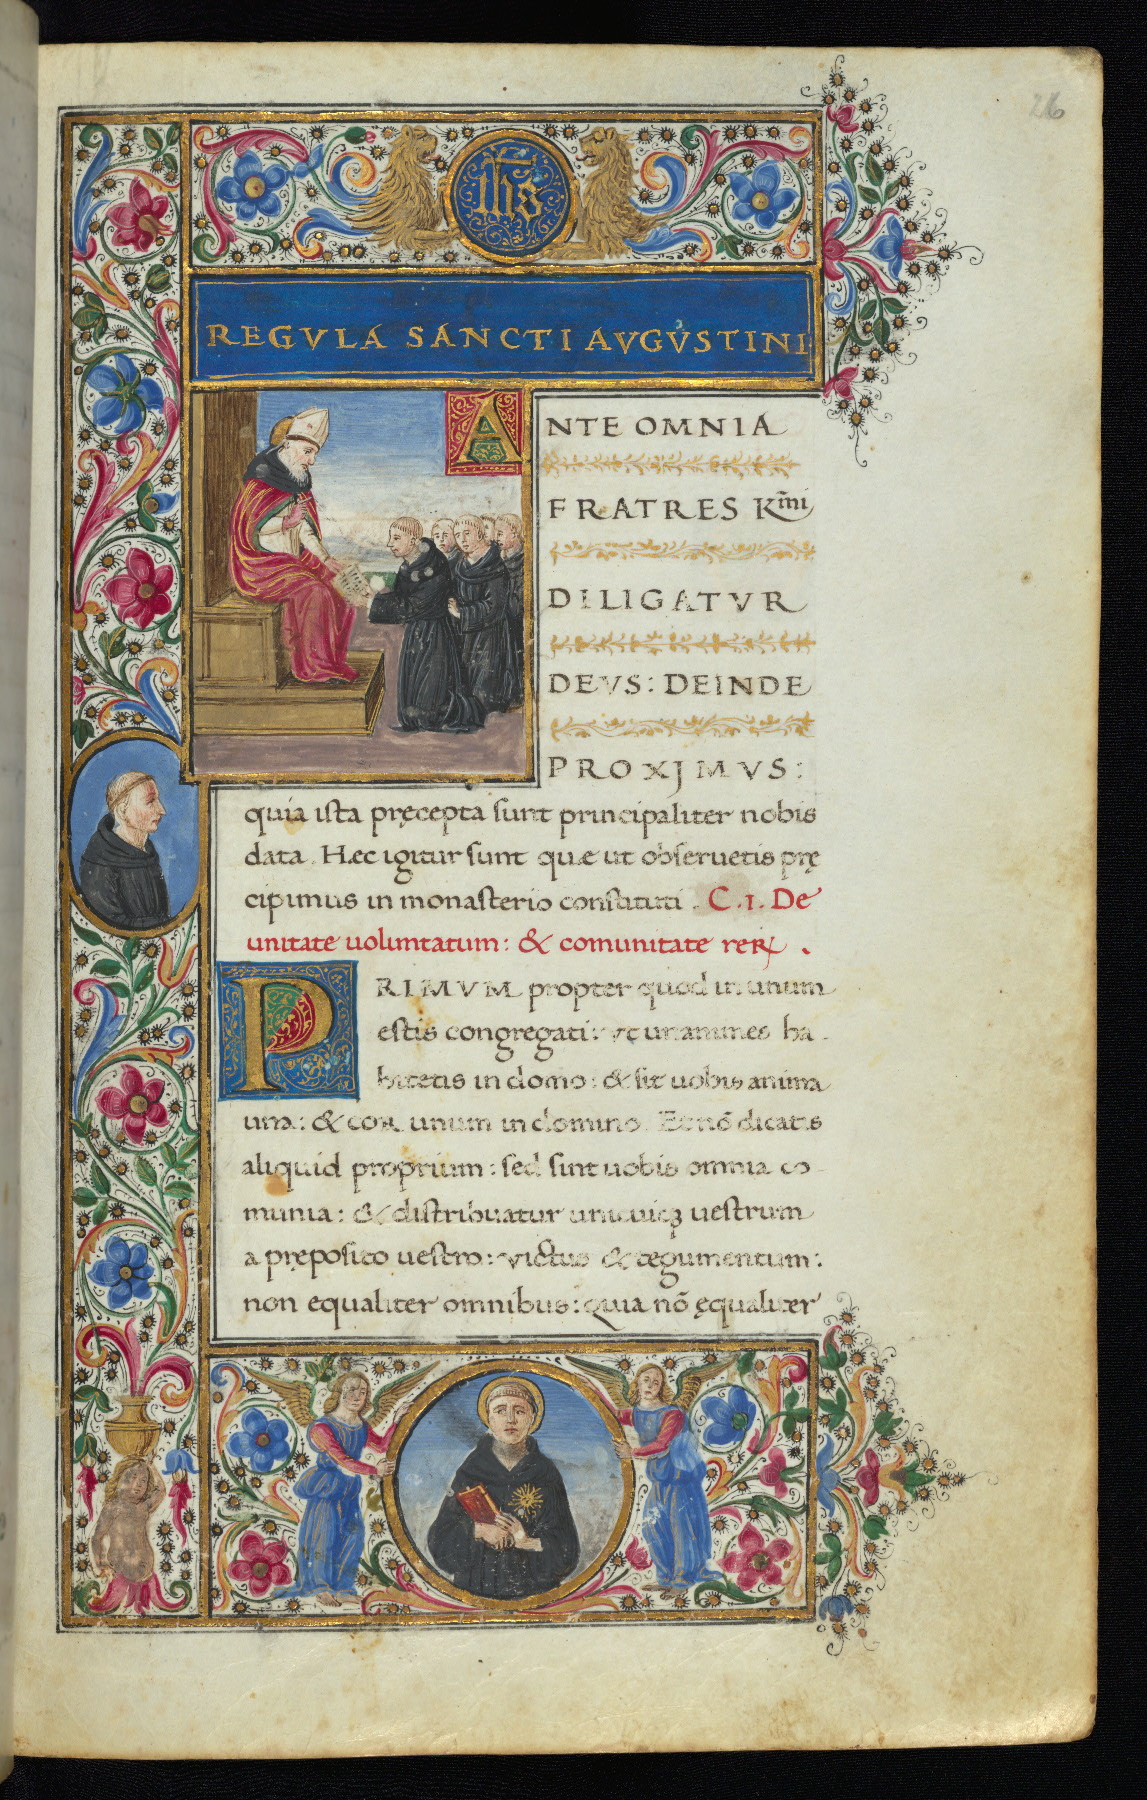 26
ihs
REGVLA SANCTI AVGVSTINI
ANTE OMNIA
FRATRES Km̅i
DILIGATVR
DEVS: DEINDE
PROXIMVS:
quia ista pręcepta sunt principaliter nobis
data. Hæc igitur sunt quæ ut obseruetis prę
cipimus in monasterio constituti. C.1. De
unitate uoluntatum: & comunitate reꝝ.
PRIMVM propter quod in unum
estis congregati: ut unanimes ha-
bitetis in domo: & sit uobis anima
una: & cor unum in domino. Et nō dicatis
aliquid proprium: sed sint uobis omnia co-
munia: & distribuatur unicuiqꝫ uestrum
a pręposito uestro: victus & tegumentum:
non equaliter omnibus: quia nō ęqualiter